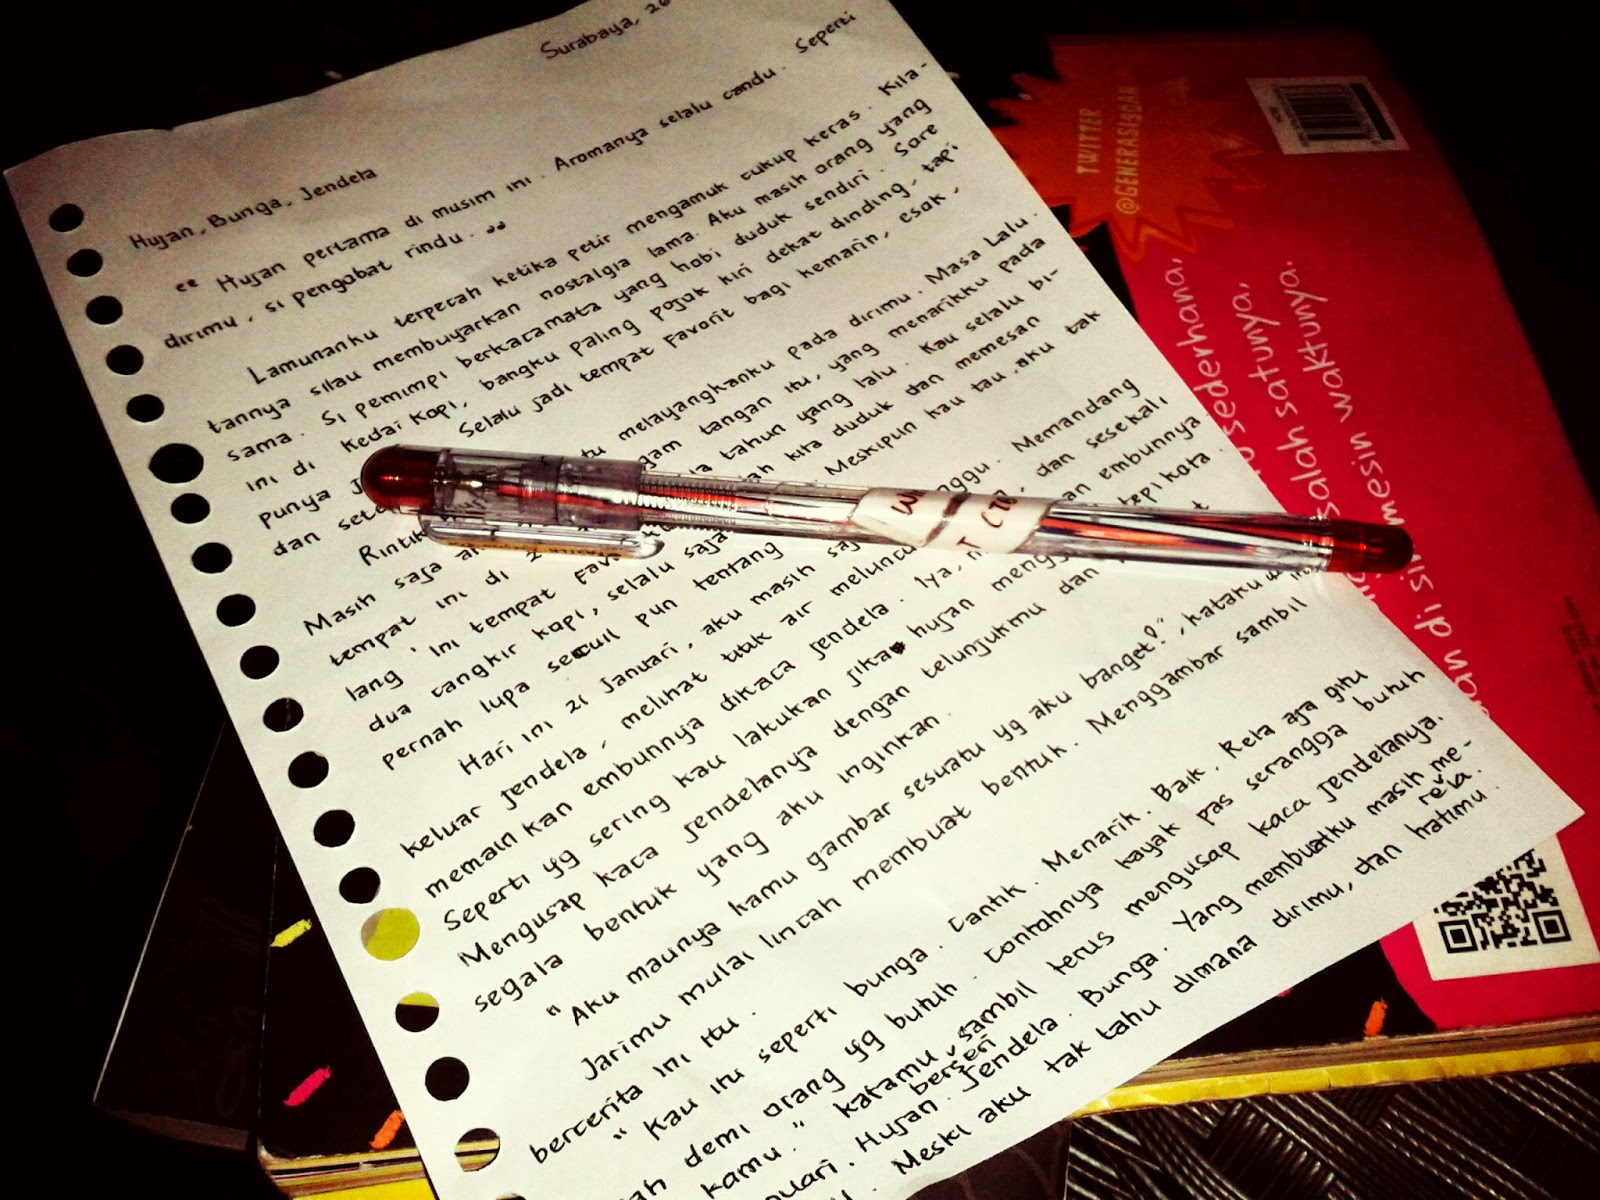 Surabaya, 26
Hujan, Bunga, Jendela
“ Hujan pertama di musim ini. Aromanya selalu candu. Seperti
dirimu, si pengobat rindu. ”
Lamunanku terpecah ketika petir mengamuk cukup keras. Kila-
tannya silau membuyarkan nostalgia lama. Aku masih orang yang
sama. Si pemimpi berkacamata yang hobi duduk sendiri. Sore
ini di kedai kopi, bangku paling pojok kiri dekat dinding, tapi
punya Selalu jadi tempat favorit bagi kemarin, esok,
dan
Rintik melayangkanku pada dirimu. Masa Lalu.
Masih saja tangan itu, yang menarikku pada
tempat ini di 2 tahun yang lalu. Kau selalu bi-
lang ' ini tempat kita duduk dan memesan
dua cangkir kopi, selalu saja Meskipun kau tau, aku tak
pernah lupa secuil pun tentang
Hari ini 21 Januari, aku masih Memandang
keluar jendela, melihat titik air dan sesekali
memainkan embunnya dikaca jendela. Iya, embunnya
Seperti yg sering kau lakukan jika hujan tepi kota.
Mengusap kaca jendelanya dengan telunjukmu dan
segala bentuk yang aku inginkan.
“ Aku maunya kamu gambar sesuatu yg aku banget!”, kataku
Jarimu mulai lincah membuat bentuk. Menggambar sambil
bercerita ini itu.
“ Kau itu seperti bunga. Cantik. Menarik. Baik. Rela aja gitu
demi orang yg butuh. Contohnya kayak pas serangga butuh
kamu.” katamu sambil terus mengusap kaca jendelanya.
berseri
Hujan. Jendela. Bunga. Yang membuatku masih me-
rela.
Meski aku tak tahu dimana dirimu, dan hatimu.
TWITTER
@GENERASI90AN
sederhana,
salah satunya,
mesin waktunya.
an di si